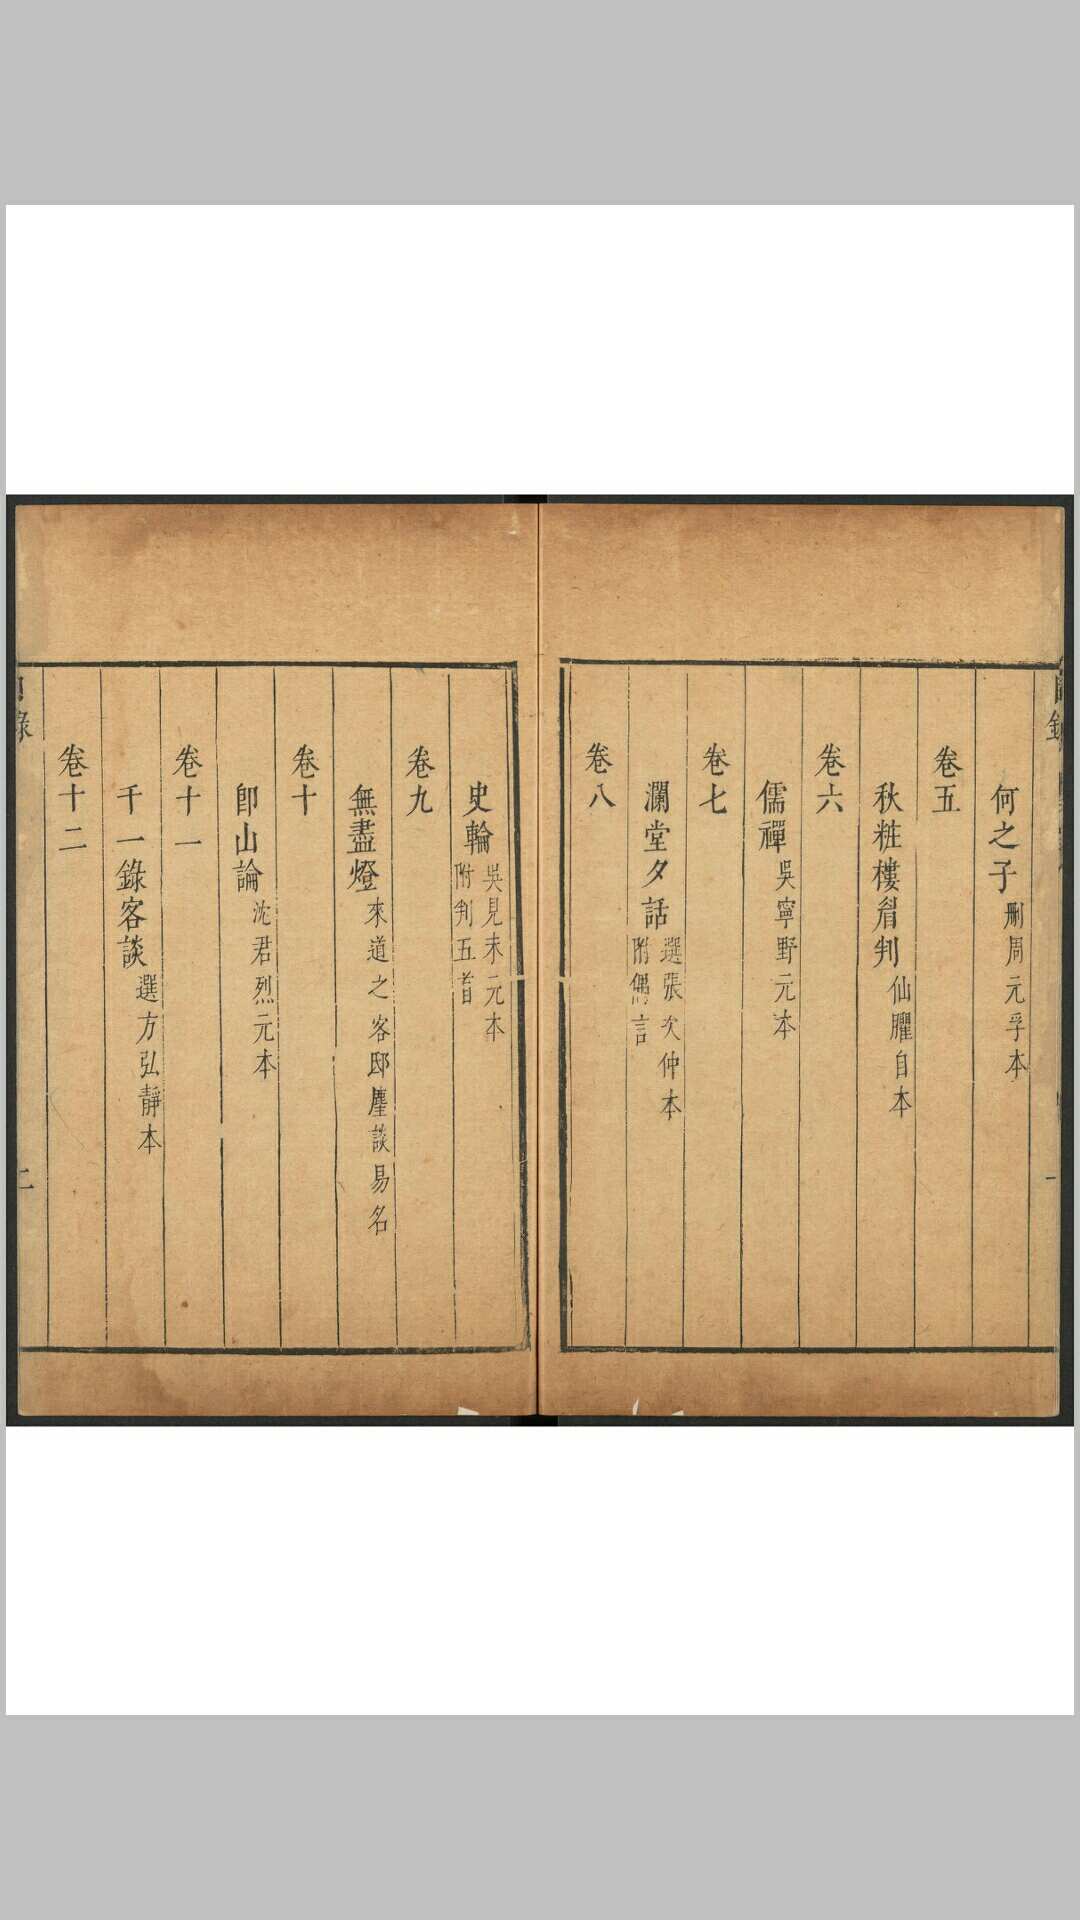 何之子 刪周元孚本
卷五
秋粧樓眉判 仙臞自本
卷六
儒禪 吳寧野元本
卷七
瀾堂夕話 選張次仲本
附偶言
卷八
史輪 吳見未元本
附判五首
卷九
無盡燈 來道之客邸麈談易名
卷十
卽山論 沈君烈元本
卷十一
千一錄客談 選方弘靜本
卷十二